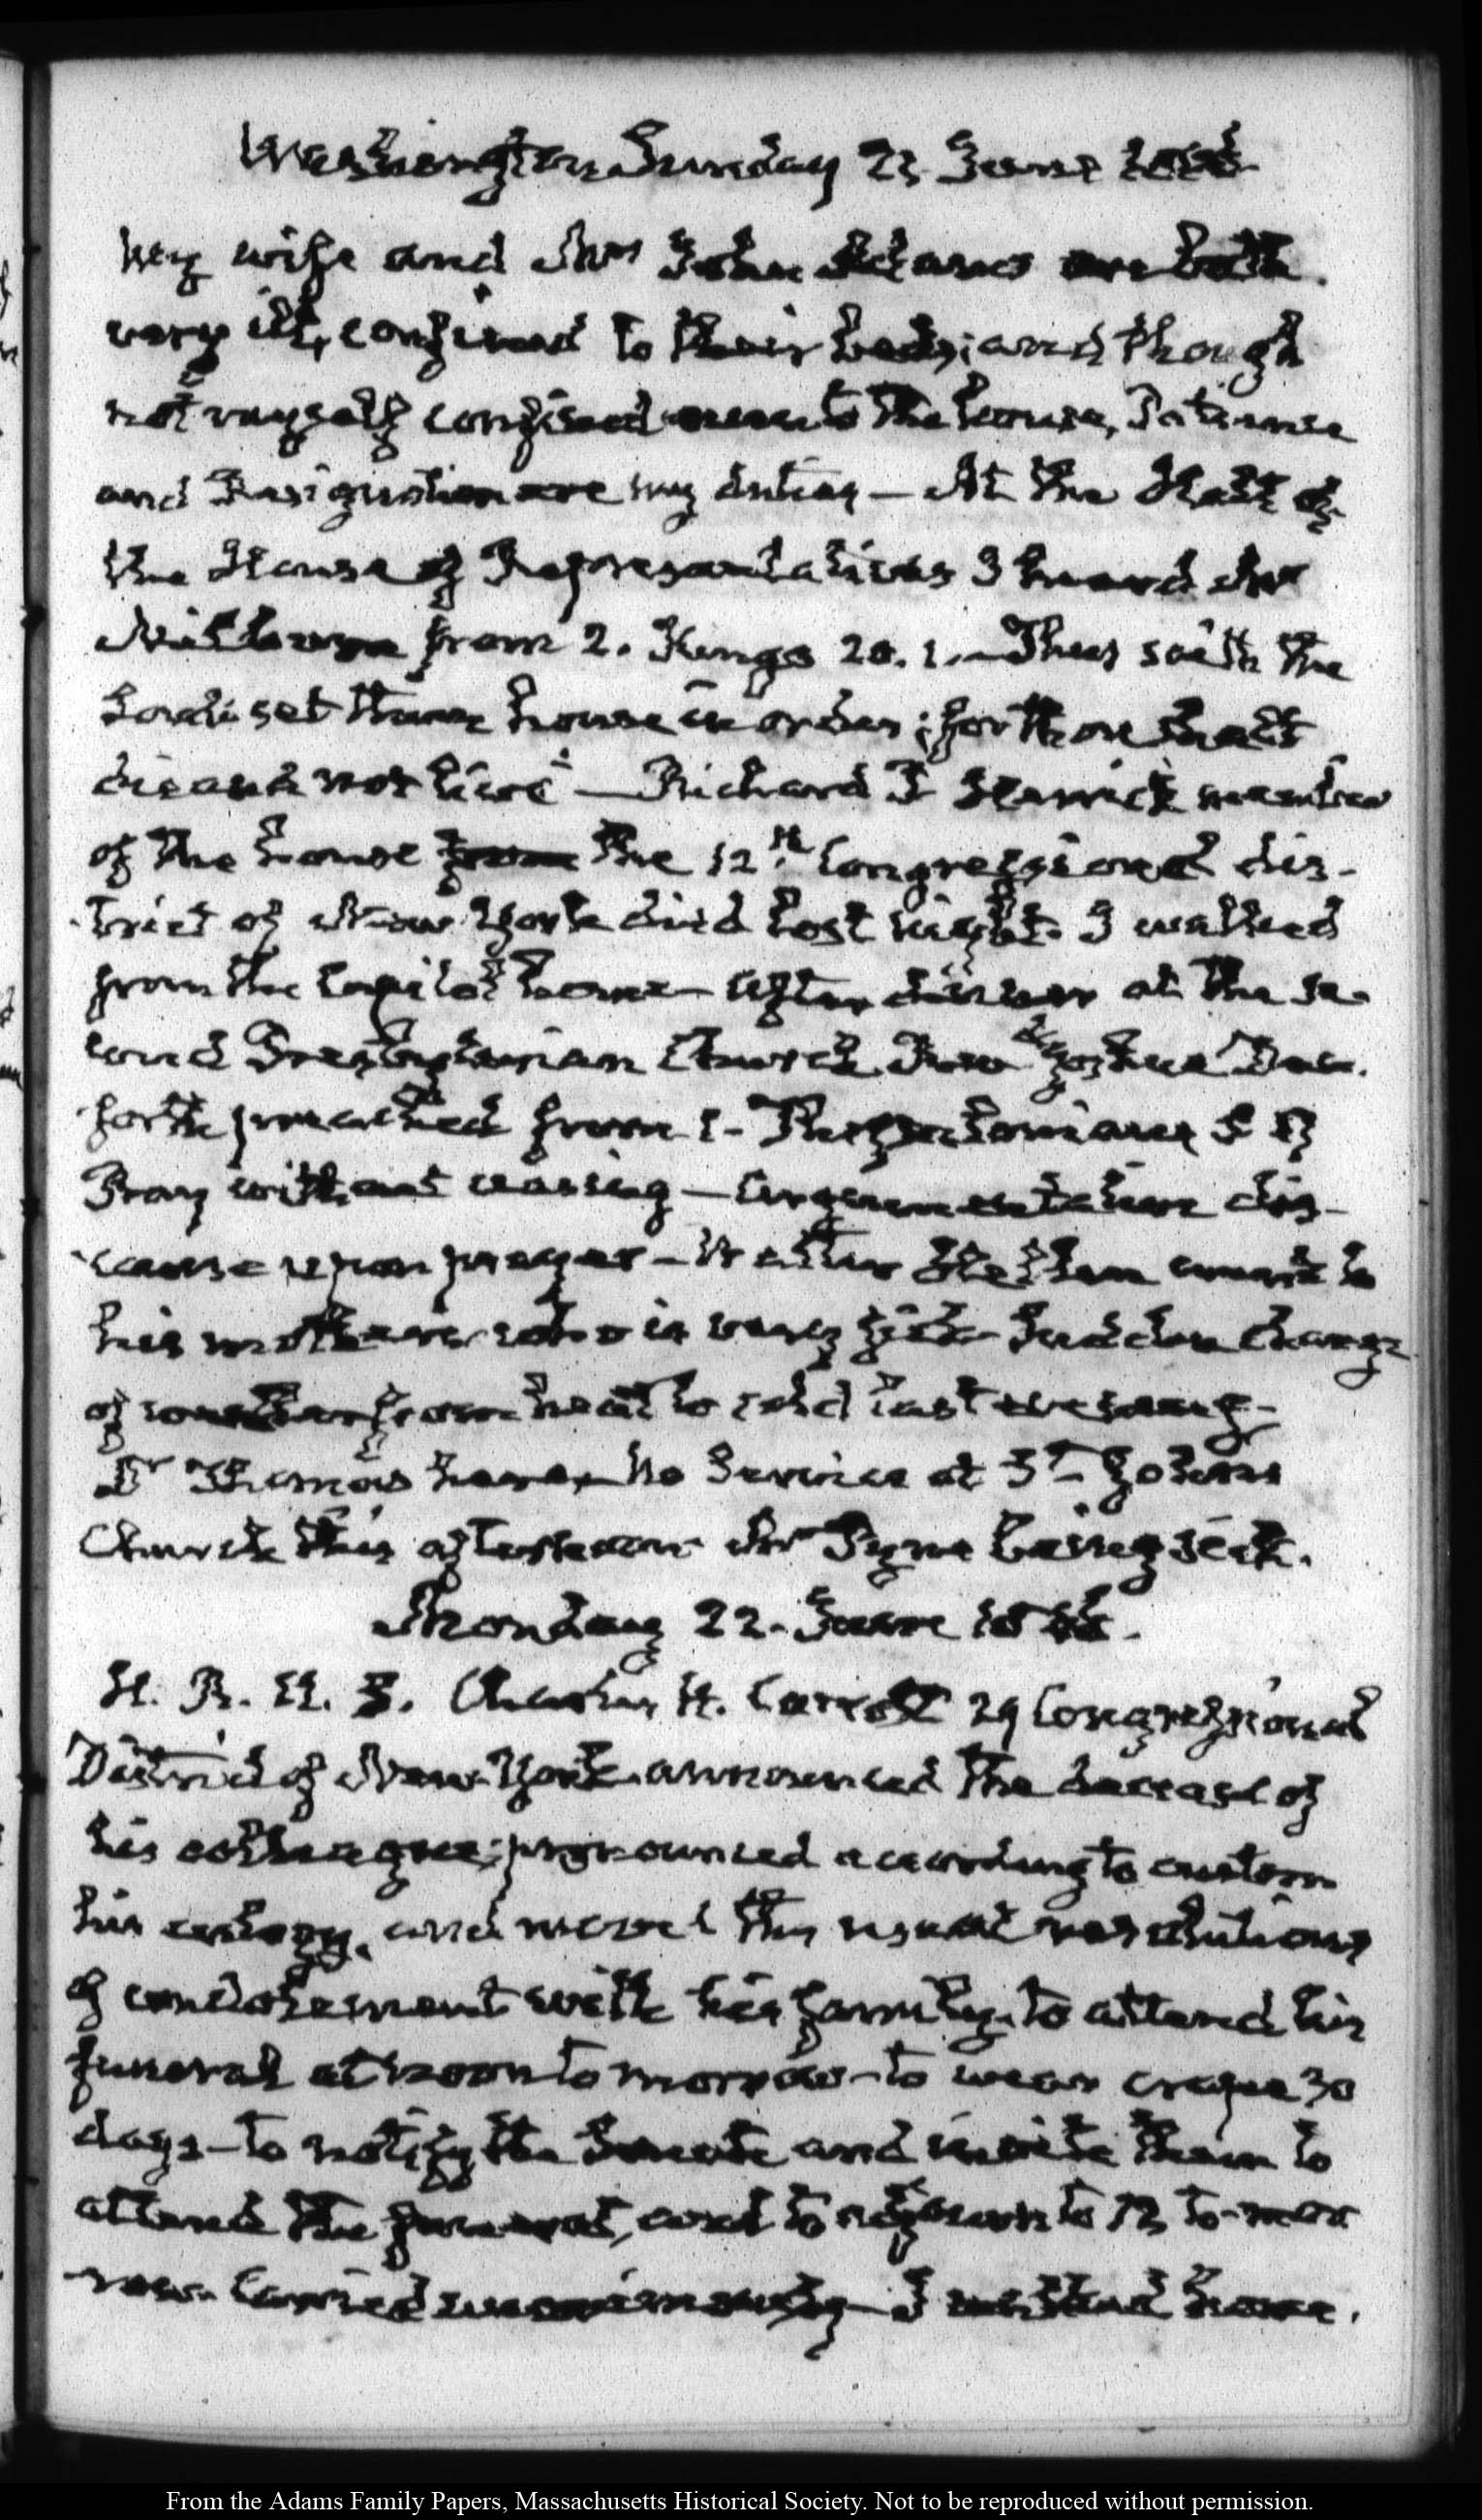 Washington Sunday 21 June 1846
My wife and Mrs John Adams are both
very ill, confined to their beds; and though
not myself confined even to the house, Patience
and Resignation are my duties — At the Hall of
the House of Representatives I heard Mr
from 2. Kings 20. 1. — Thus saith the
Lord; set thine house in order; for thou shalt
die and not live" — Richard P Herrick member
of the house from the 12th Congressional dis-
trict of New York died last night. I walked
from the Capitol home — After dinner at the se-
cond Presbyterian Church Revd Joshua Dan-
forth preached from 1. Thessalonians 5 17
Pray without ceasing — Argumentative dis-
course upon prayer — Walter Hellen came to
his mother who is very sick — Sudden change
of weather from heat to cold last evening —
Dr Thomas here. No Service at St Johns
Church this afternoon Mr Pyne being sick.
Monday 22. June 1846.
H. R. U. S. Charles H. Carroll 29 Congressional
District of New York announced the decease of
his colleague; pronounced according to custom
his eulogy, and moved the usual resolutions
of condolement with his family, to attend his
funeral at noon to morrow — to wear crape 30
days — to notify the Senate and invite them to
attend the funeral, and to adjourn to 12 to-mor
row. Carried unanimously — I walked home.
From the Adams Family Papers, Massachusetts Historical Society. Not to be reproduced without permission.